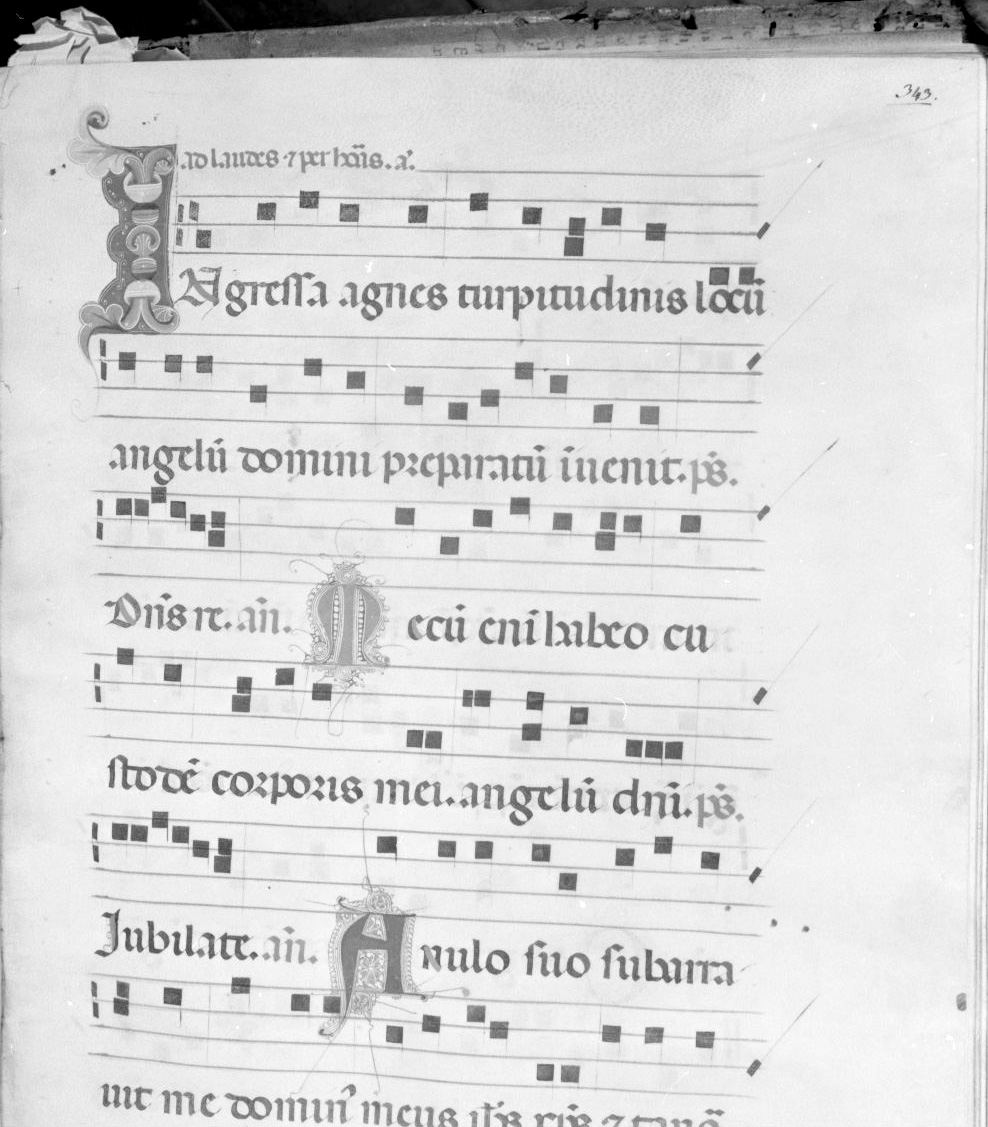 343.
ad laudes ⁊ per horas. a͂.
INgressa agnes turpitudinis locū
angelū domini preparatū īuenit. ps̄.
Dn̄s re. an̄. Mecū enī habeo cu
stodē corporis mei. angelū dn̄i. ps̄.
Jubilate. an̄. Anulo suo subarra
uit me domin⁹ meus